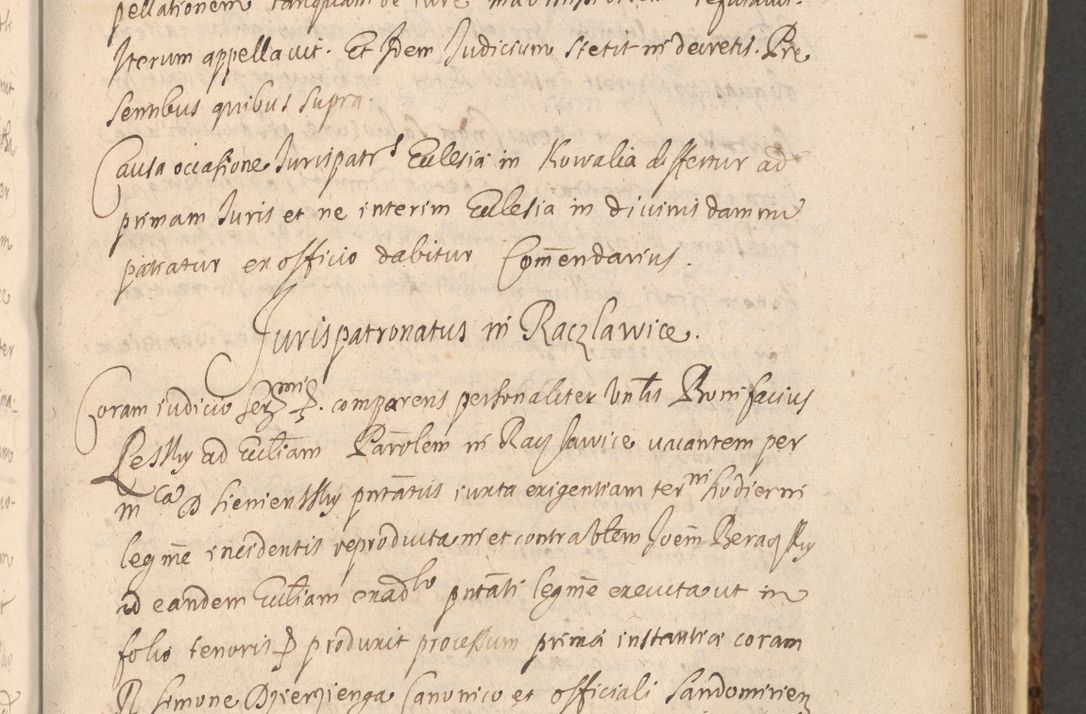 pellationem tanquam de iure
Iterum appellavit. Et Idem Iudicium stetit in decretis. Pre
sentibus quibus supra
Causa occasione Iurispatr̃s Ecclesia in Kowalia differtur ad
primam Iuris et ne interim Ecclesia in divinis damnu
patiatur ex officio dabitur Com̃endarius.
Iurispatronatus in Raczlawice.
Coram iudicio comparens personaliter Bonifacius
Leskÿ ad Eccl̃iam Parõlem in Raczlawice vacantem per
pntãtus iuxta exigentiam termni hodierni
legm̃e incidentis reproducta et contra Joem̃
ad eandem Eccl̃iam pntãti legm̃e executa ut in
folio tenoris produxit processum prima instantiæ coram
R Simone Canonico et officiali Sandomirien